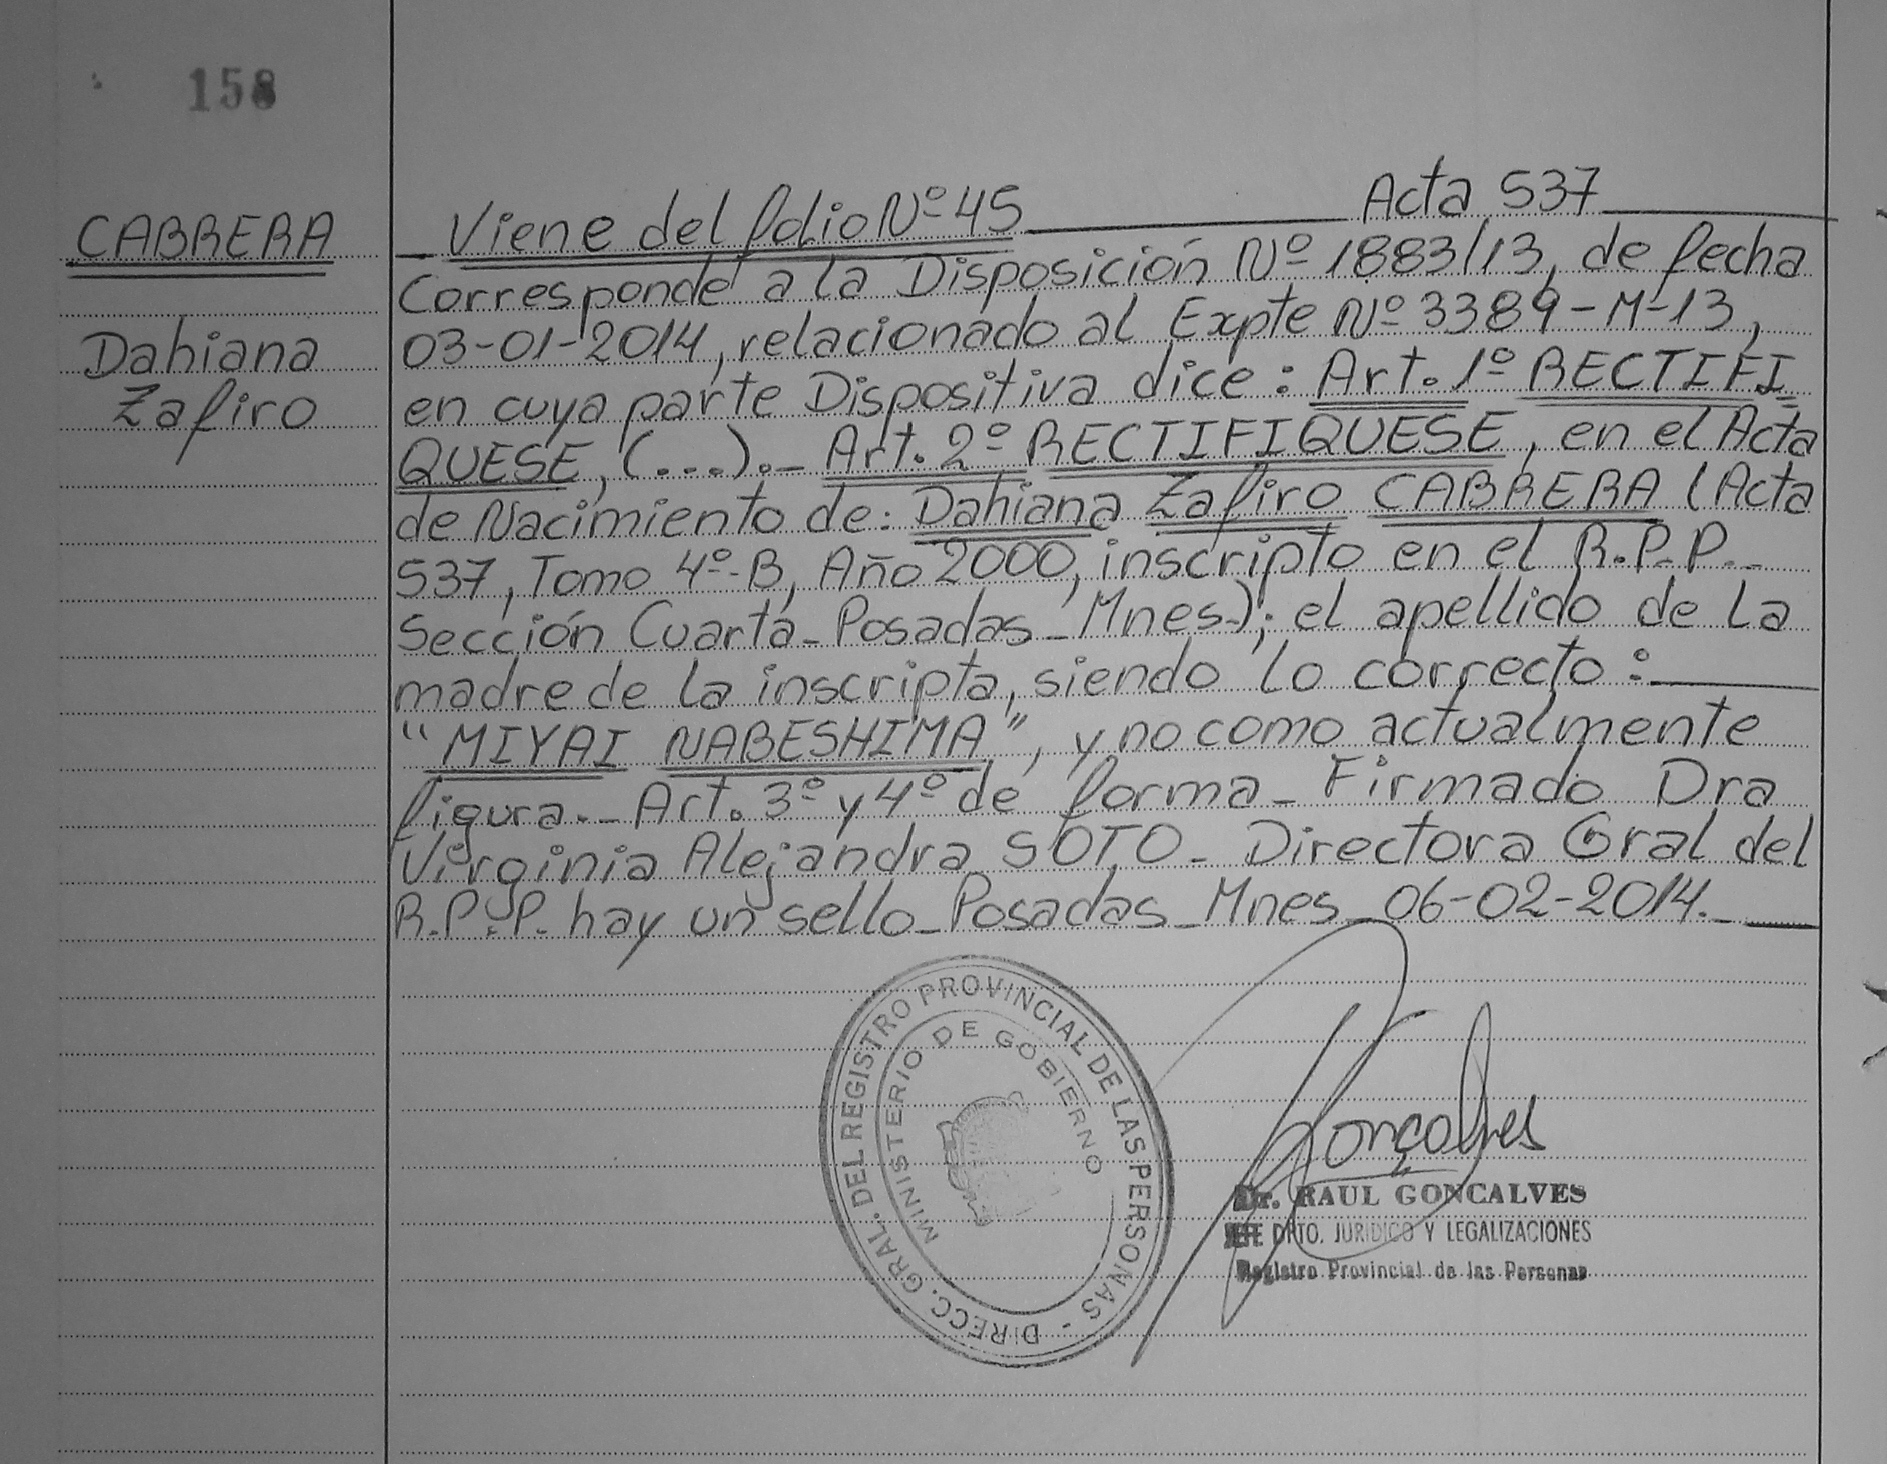 158
CABRERA
Dahiana
Zafiro
Viene del folio Nº 45 Acta 537
Corresponde a la Disposición Nº 1883/13, de fecha
03-01-2014, relacionado al Expte Nº 3389-M-13,
en cuya parte Dispositiva dice: Art. 1º RECTIFI
QUESE, (...)._ Art. 2º RECTIFIQUESE, en el Acta
de Nacimiento de: Dahiana Zafiro CABRERA (Acta
537, Tomo 4º-B, Año 2000, inscripto en el R.P.P._
Sección Cuarta_Posadas_Mnes.); el apellido de la
madre de la inscripta, siendo lo correcto:
“MIYAI NABESHIMA”, y no como actualmente
figura._ Art. 3º y 4º de forma_ Firmado Dra
Virginia Alejandra SOTO_ Directora Gral del
R.P.P. hay un sello_Posadas_Mnes_06-02-2014._
DIRECC. GRAL. DEL REGISTRO PROVINCIAL DE LAS PERSONAS -
MINISTERIO DE GOBIERNO
Gonçalves
Dr. RAUL GONCALVES
JEFE DPTO. JURIDICO Y LEGALIZACIONES
Registro Provincial de las Personas